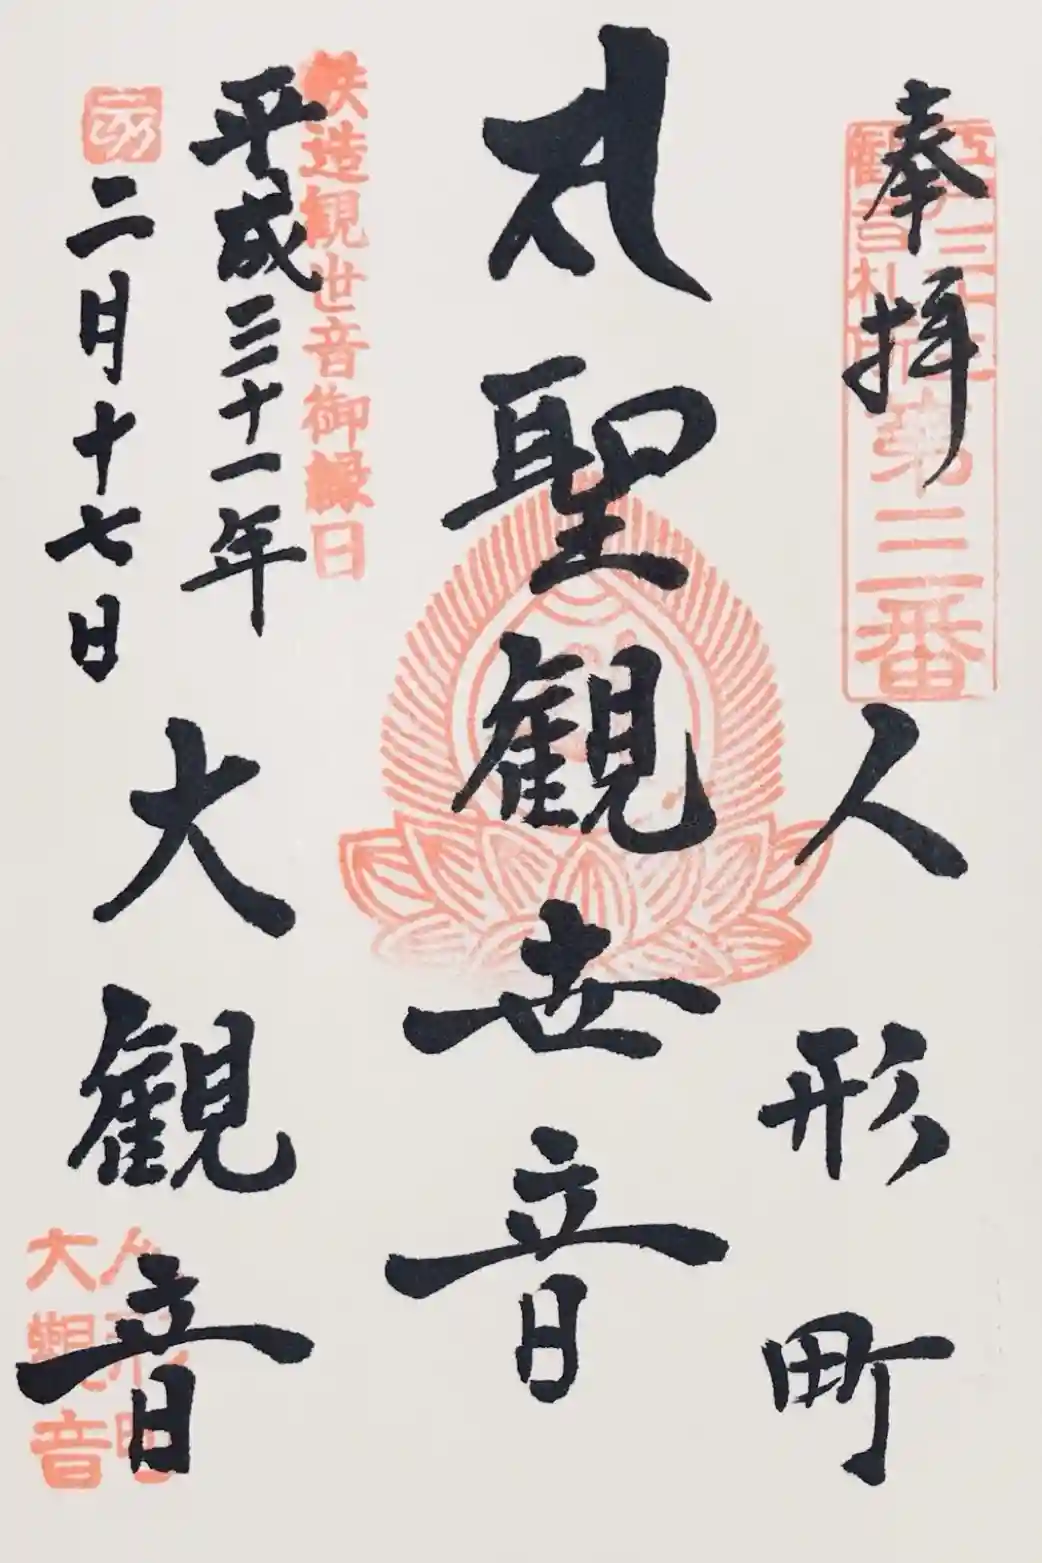 奉拝
江戸三十三
観音札所
第三番
人形町
聖観世音
鉄造観世音御縁日
平成三十一年
二月十七日
大観音
人形町
大觀音